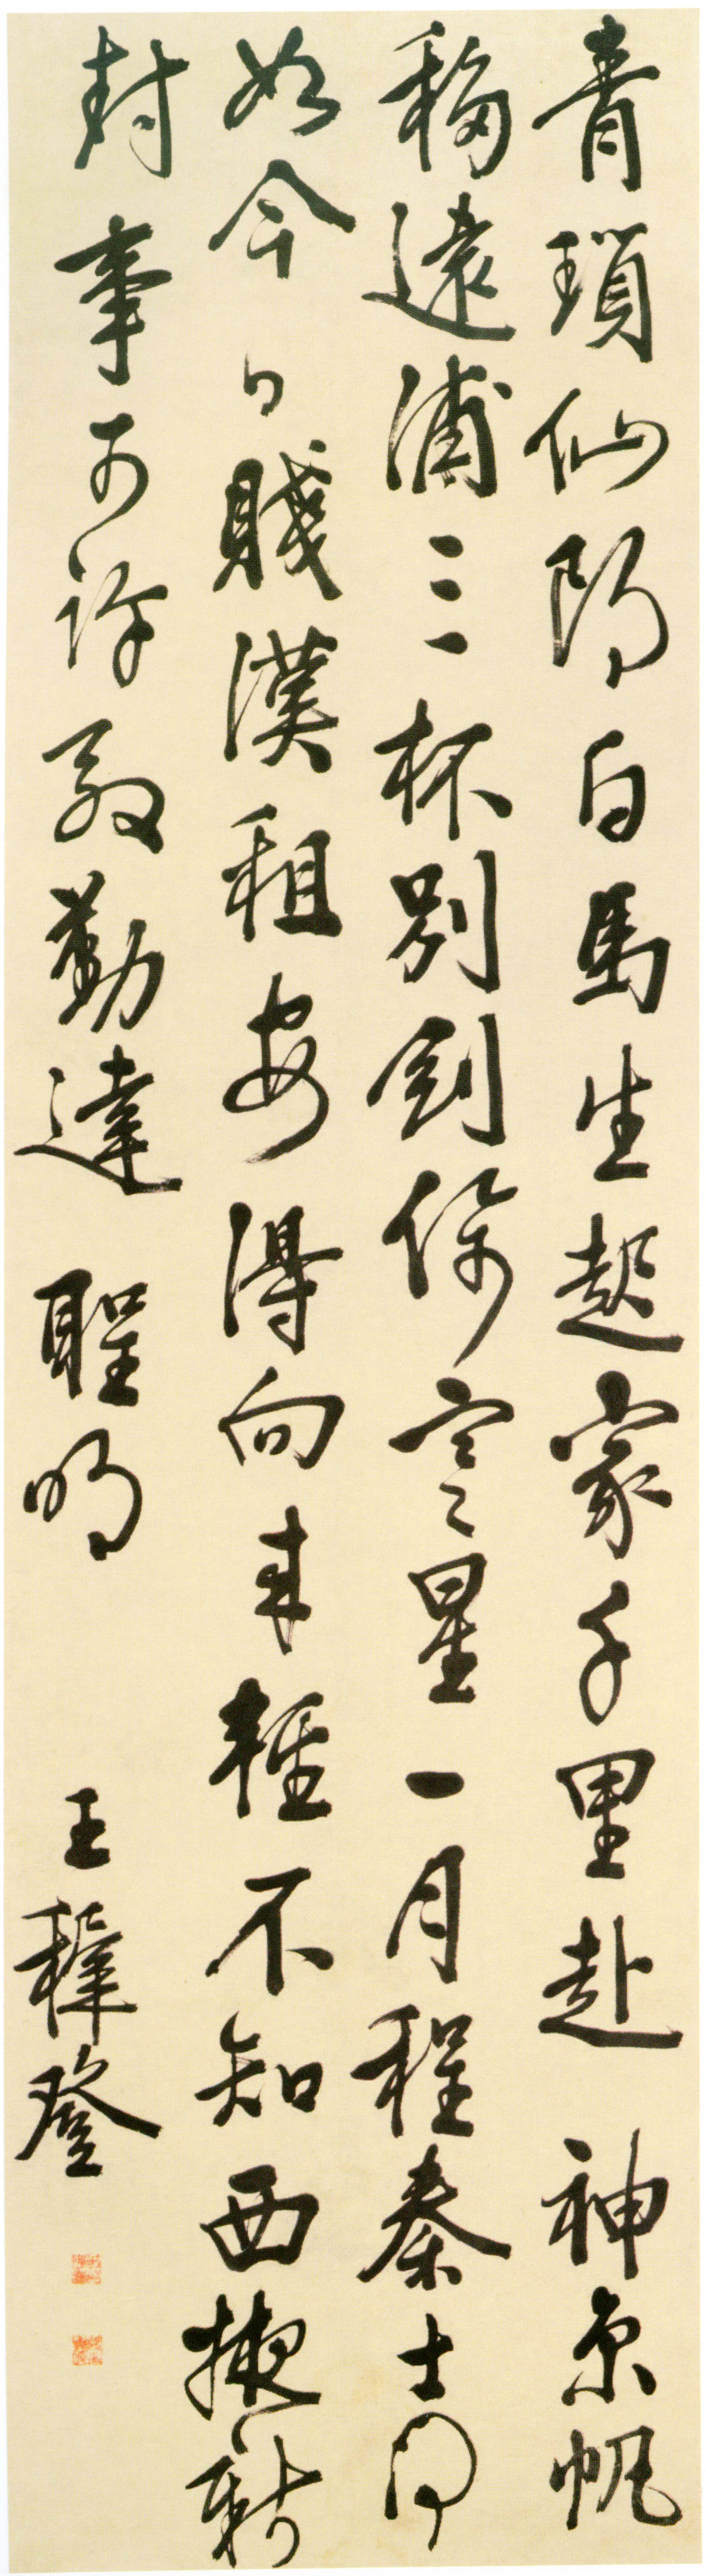 青瑣仙郎白馬生起家千里赴 神京帆
移遠浦三杯別劍倚寒星一月程秦士何
如今日賤漢租安得向來輕不知西掖新
封事可許殷勤達 聖明
王穉登